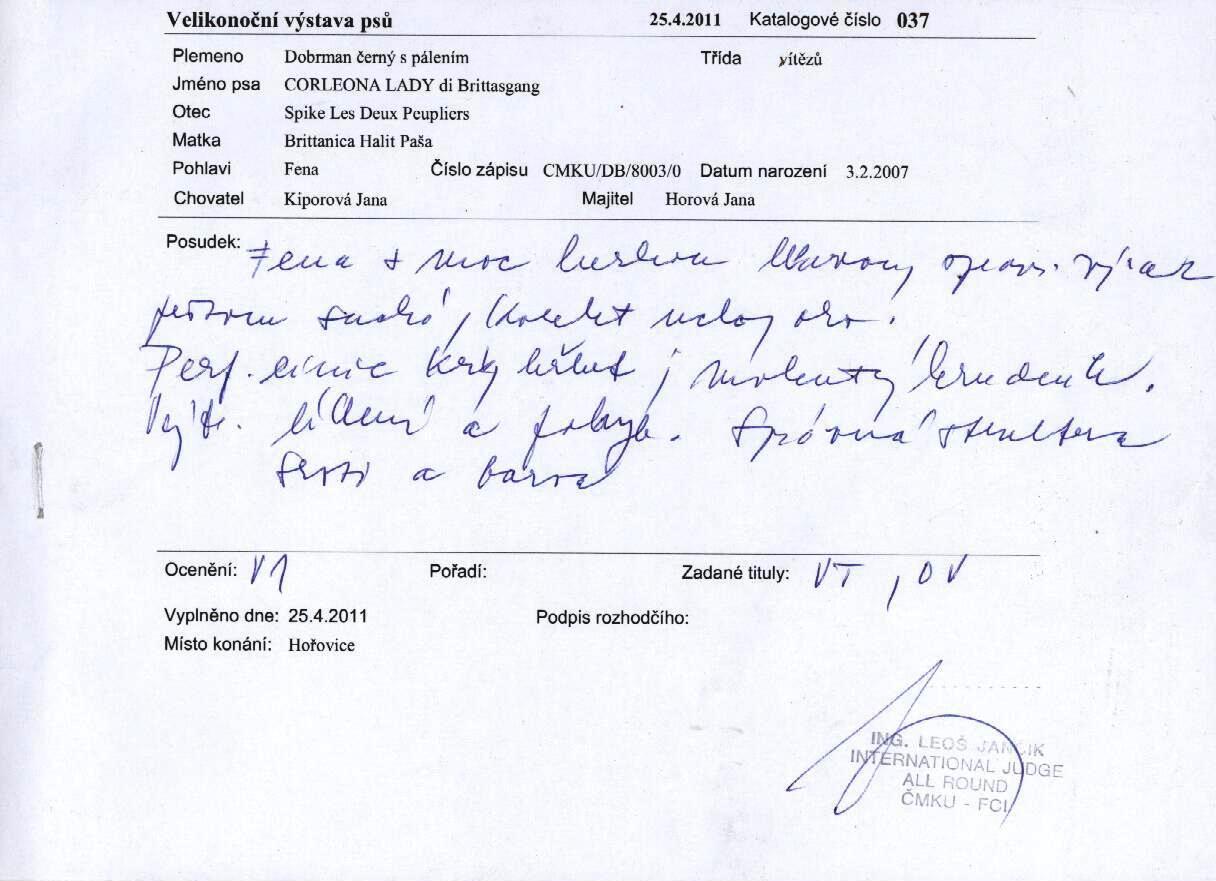 Velikonoční výstava psů 25.4.2011 Katalogové číslo 037
Plemeno Dobrman černý s pálením Třída vítězů
Jméno psa CORLEONA LADY di Brittasgang
Otec Spike Les Deux Peupliers
Matka Brittanica Halit Paša
Pohlavi Fena Číslo zápisu CMKU/DB/8003/0 Datum narození 3.2.2007
Chovatel Kiporová Jana Majitel Horová Jana
Posudek: Fena s moc hezkou hlavou, správ. výraz
suché, oko.
Perf. linie krk hřbet, molenty
Výb. a pohyb. Správná struktura
srsti a barva
Ocenění: V1 Pořadí: Zadané tituly: VT, OV
Vyplněno dne: 25.4.2011 Podpis rozhodčího:
Místo konání: Hořovice
ING. LEOŠ JANČIK
INTERNATIONAL JUDGE
ALL ROUND
ČMKU - FCI